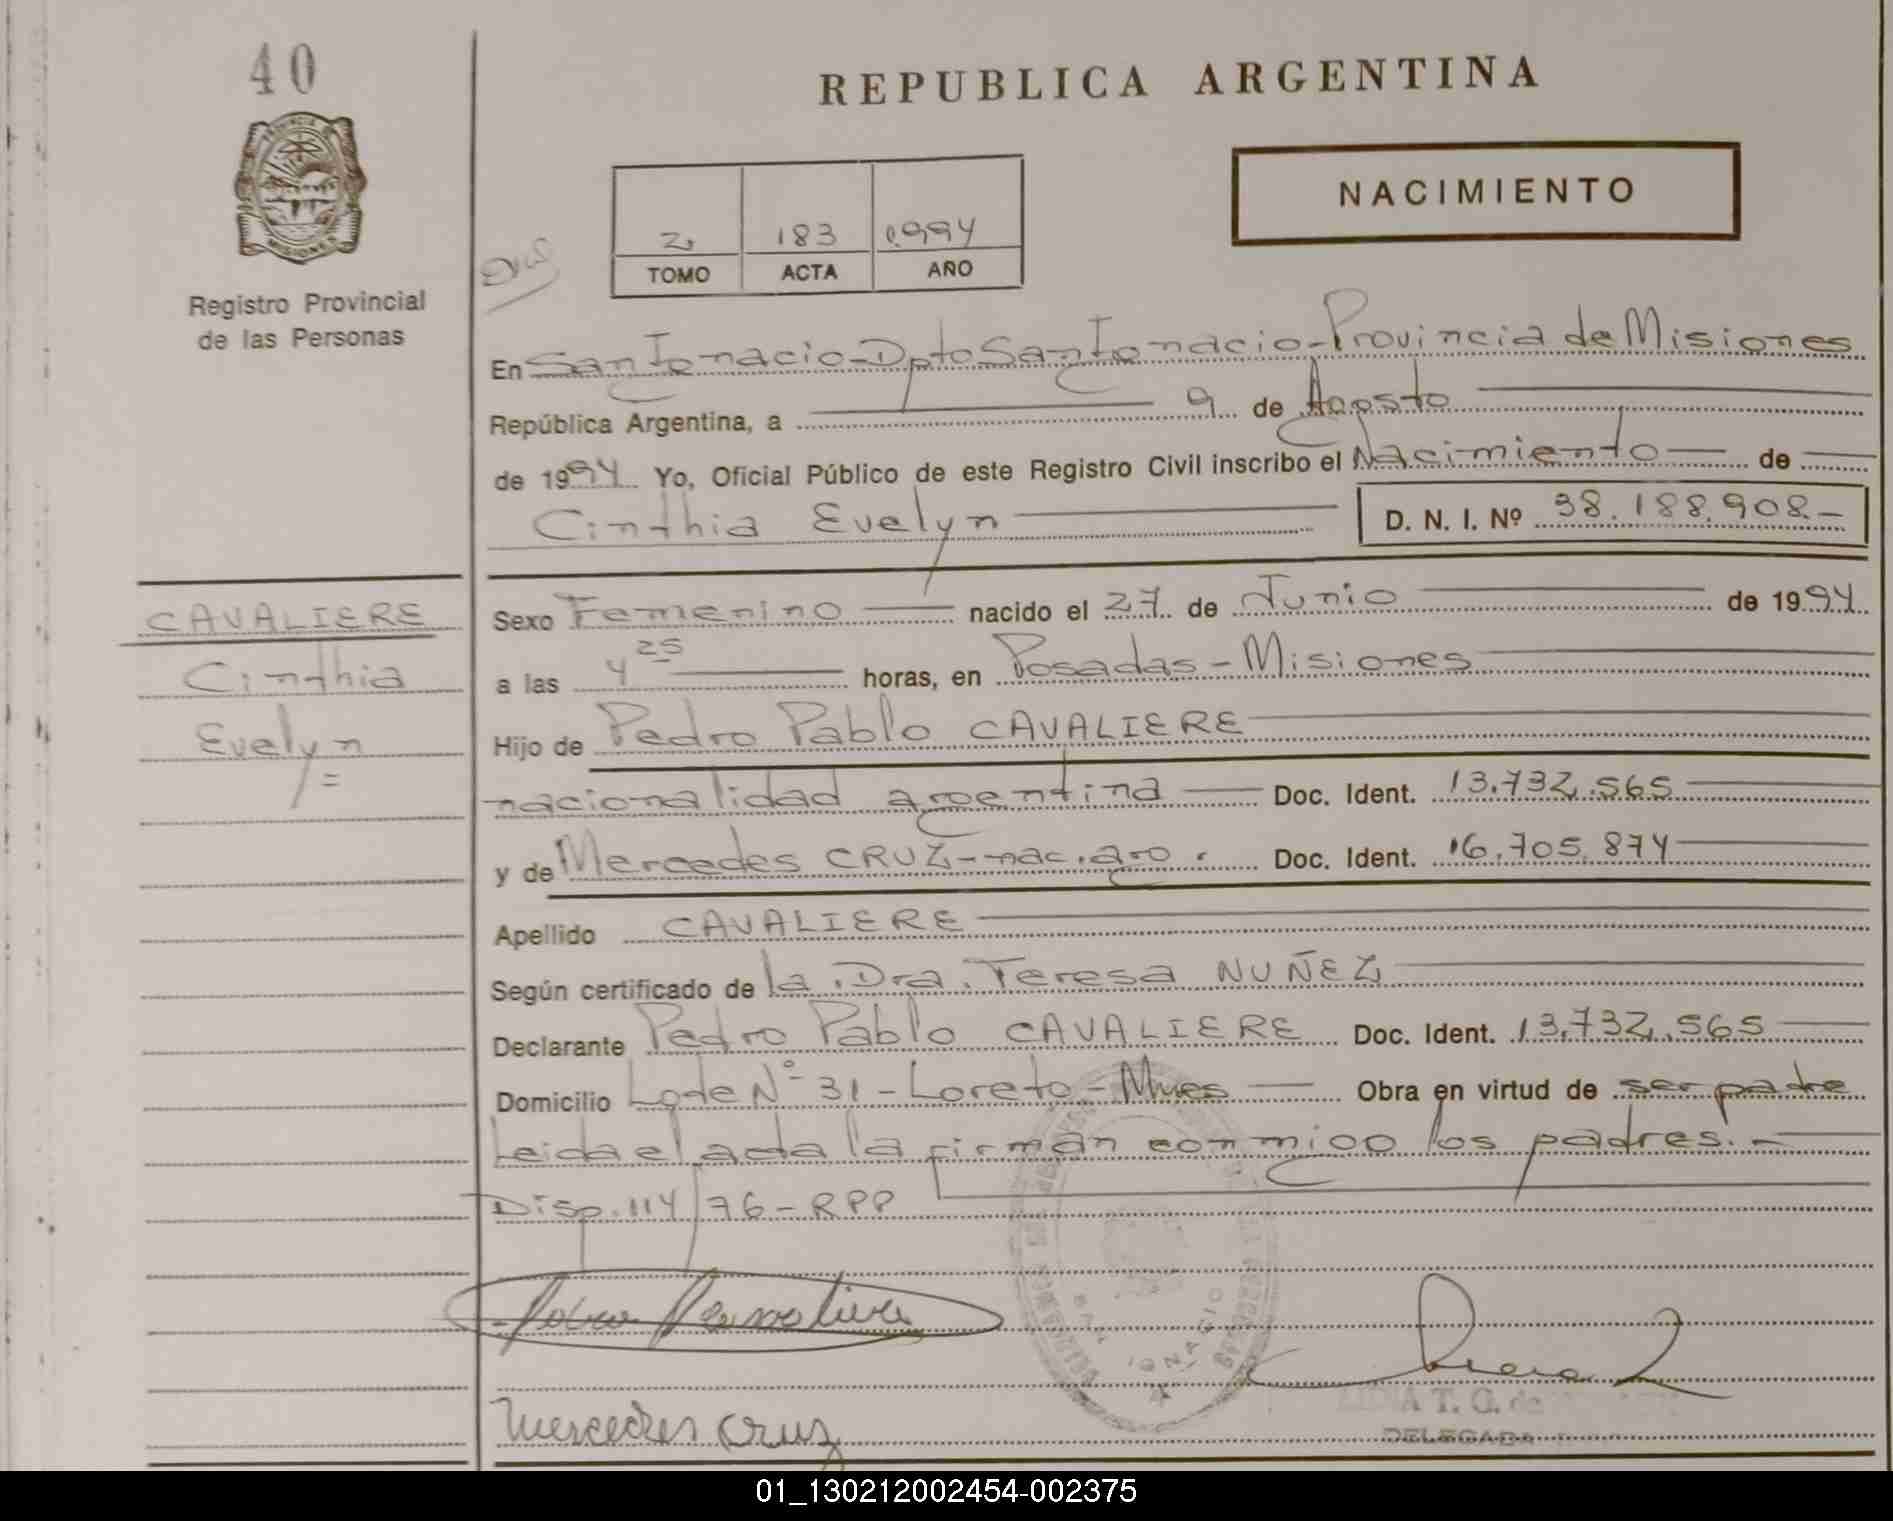 40
REPUBLICA ARGENTINA
NACIMIENTO
2 183 1.994
TOMO ACTA AÑO
PROVINCIA DE MISIONES
Registro Provincial
de las Personas
En San Ignacio - Dpto San Ignacio - Provincia de Misiones
República Argentina, a 9 de Agosto
de 1994 Yo, Oficial Público de este Registro Civil inscribo el Nacimiento de
Cinthia Evelyn D. N. I. Nº 38.188.908.-
CAVALIERE
Cinthia
Evelyn =
Sexo Femenino nacido el 27 de Junio de 1994
a las 4 25 horas, en Posadas - Misiones
Hijo de Pedro Pablo CAVALIERE
nacionalidad argentina Doc. Ident. 13.732.565
y de Mercedes CRUZ - nac. arg. Doc. Ident. 16.705.874
Apellido CAVALIERE
Según certificado de la Dra. Teresa NUÑEZ
Declarante Pedro Pablo CAVALIERE Doc. Ident. 13.732.565
Domicilio Lote Nº 31 - Loreto - Mnes Obra en virtud de ser padre
Leida el acta la firman conmigo los padres.-
Disp. 114/76 - RPP
SAN IGNACIO
Mercedes Cruz
LIDIA T. G. de
DELEGADA
01_130212002454-002375